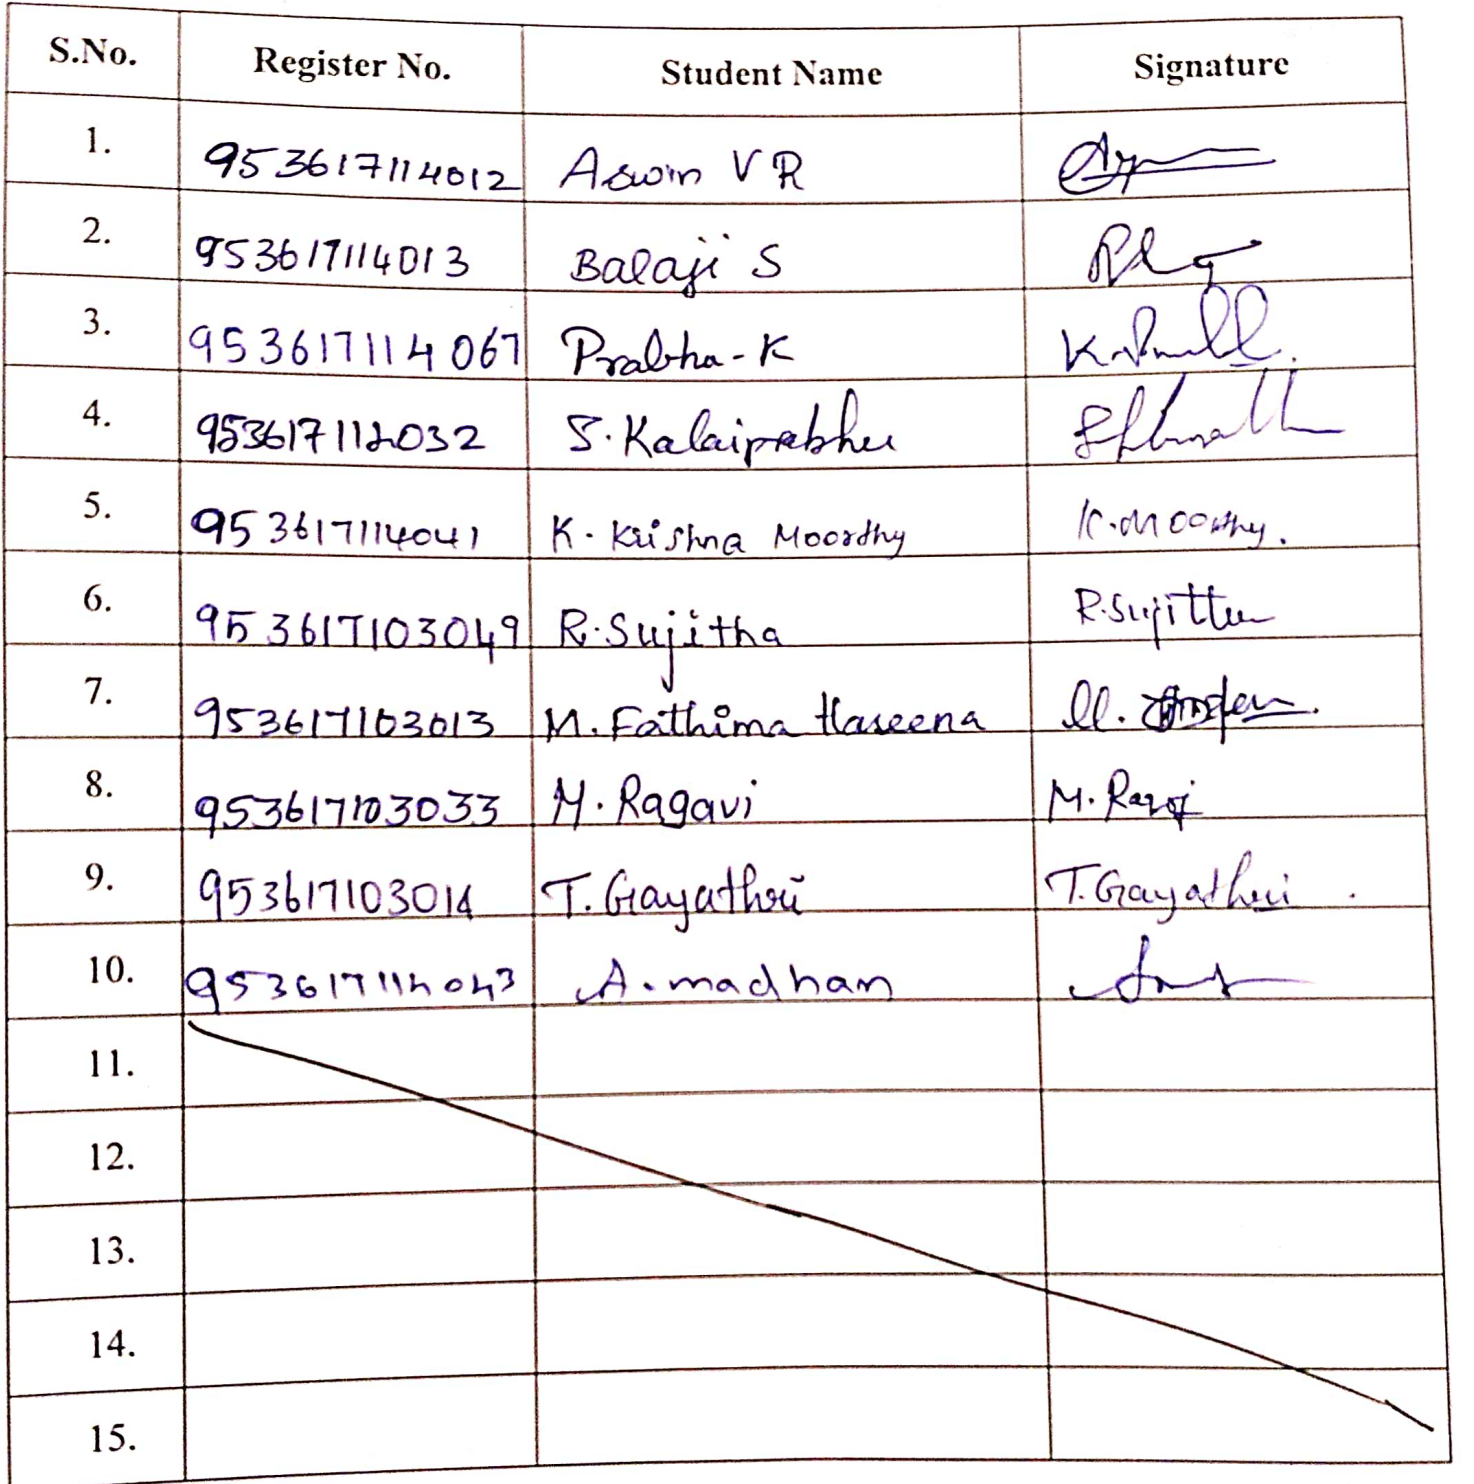 S.No. Register No. Student Name Signature
1. 953617114012 Aswin V R
2. 953617114013 Balaji S
3. 953617114067 Prabha-K
4. 953617112032 S.Kalaiprabhu
5. 953617114041 K. Krishna Moorthy K.Moorthy.
6. 953617103049 R.Sujitha R.Sujitha
7. 953617103013 M.Fathima Haseena M.
8. 953617103033 M.Ragavi M.
9. 953617103014 T.Gayathri T.Gayathri
10. 953617114043 A.madhan
11.
12.
13.
14.
15.